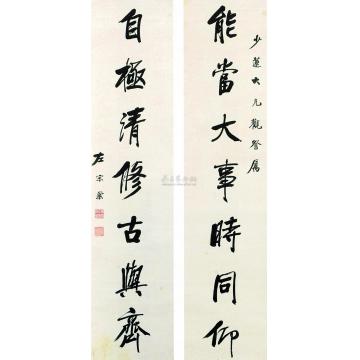 少蓮大兄觀詧屬
能當大事時同仰
自極清修古與齊
左宗棠